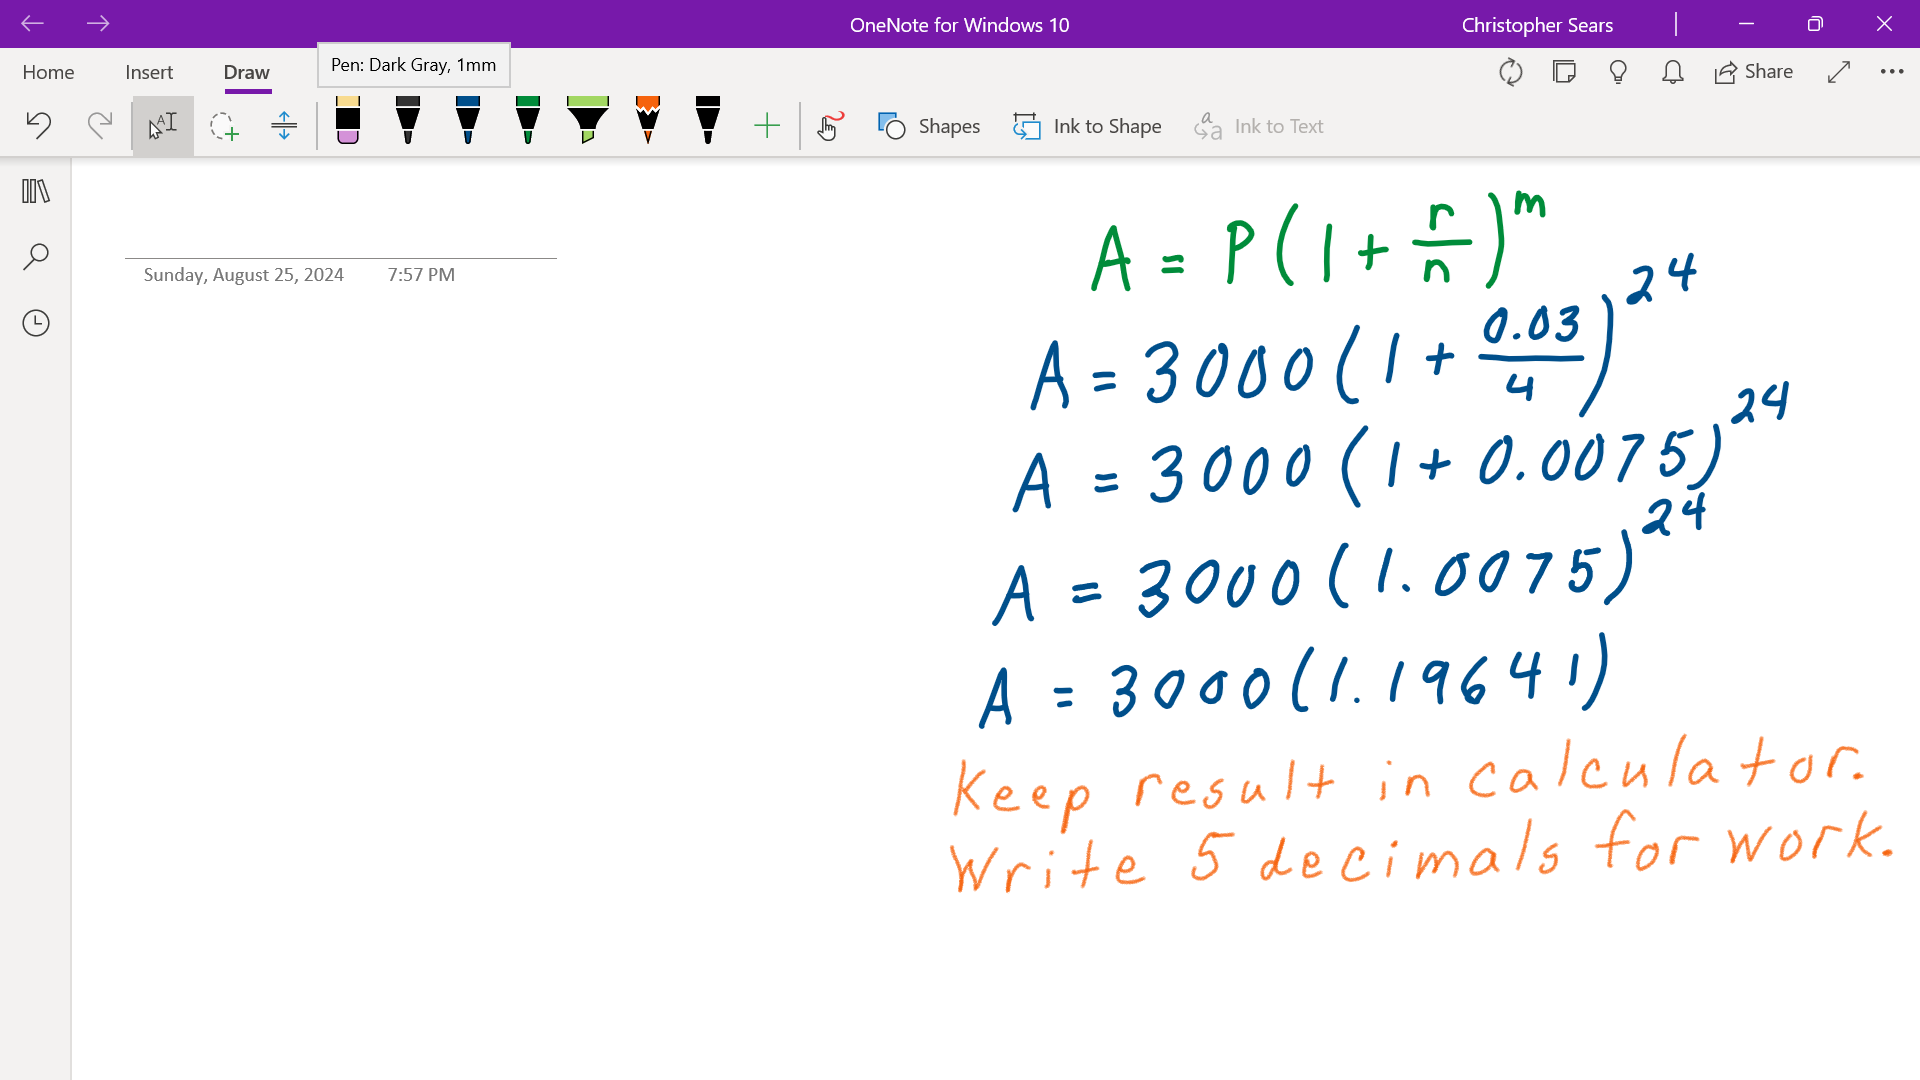 OneNote for Windows 10
Christopher Sears
Home Insert Draw
Pen: Dark Gray, 1mm
Share
Shapes Ink to Shape Ink to Text
Sunday, August 25, 2024 7:57 PM
A = P(1 + r/n)^m
A = 3000(1 + 0.03/4)^24
A = 3000(1 + 0.0075)^24
A = 3000(1.0075)^24
A = 3000(1.19641)
Keep result in calculator.
Write 5 decimals for work.